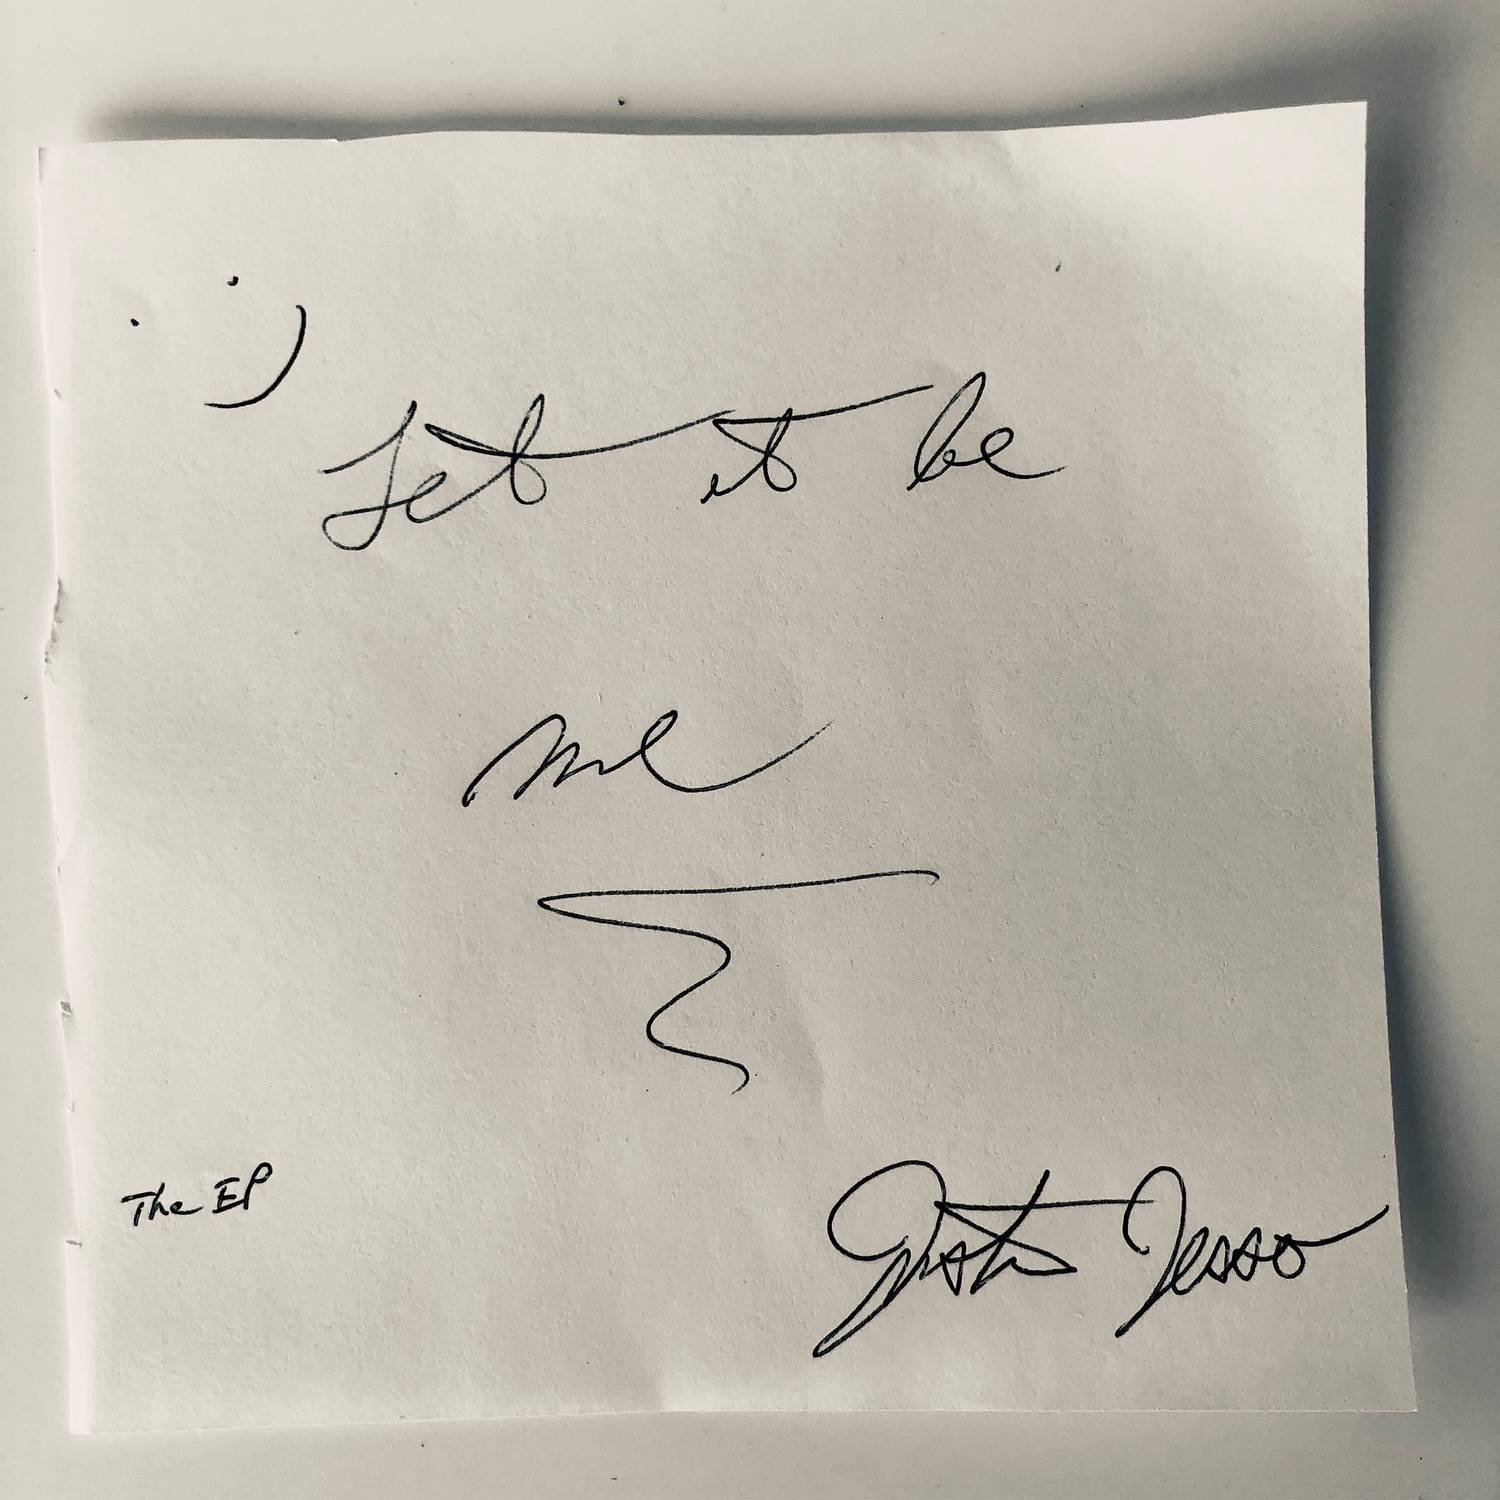 Let it be
me
The EP
Justin Jesso